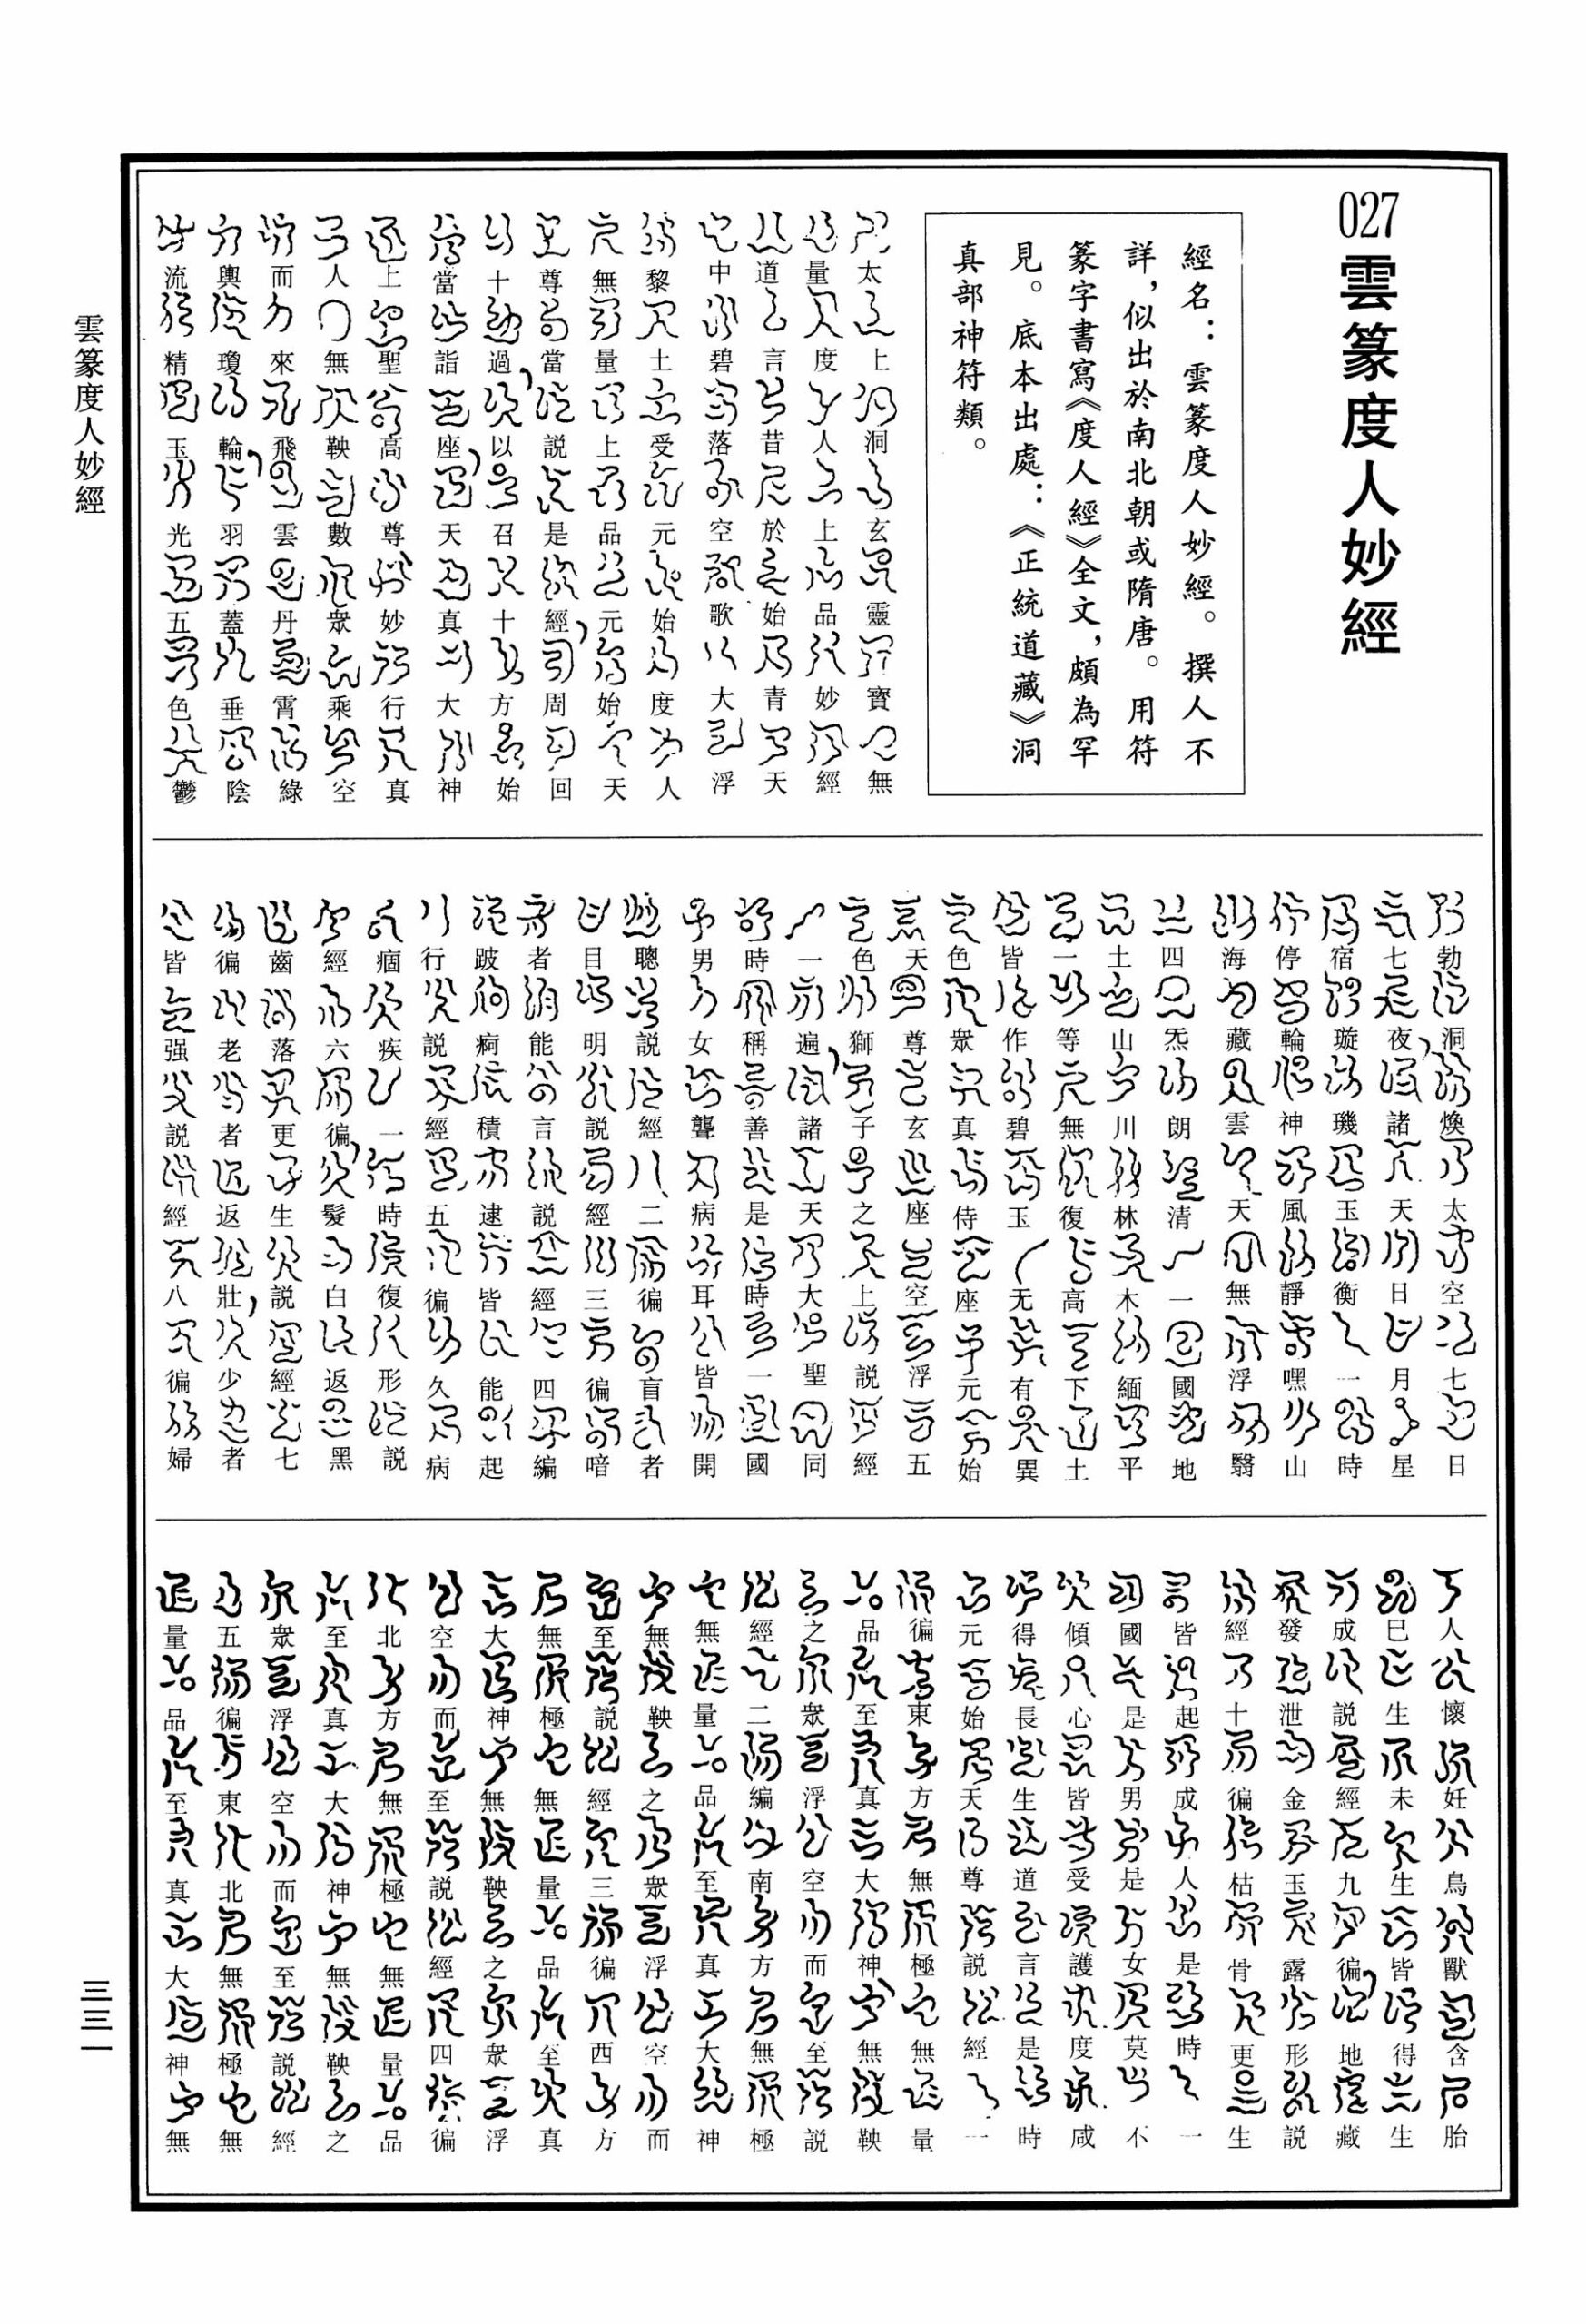 027雲篆度人妙經
經名：雲篆度人妙經。撰人不
詳，似出於南北朝或隋唐。用符
篆字書寫《度人經》全文，頗為罕
見。底本出處：《正統道藏》洞
真部神符類。
太上洞玄靈寶無
量度人上品妙經
道言昔於始青天
中碧落空歌大浮
黎土受元始度人
無量上品元始天
尊當説是經，周回
十過，以召十方始
當詣座，天真大神
上聖高尊妙行真
人無鞅數衆乘空
而來飛雲丹霄綠
輿瓊輪，羽蓋垂陰
流精玉光五色鬱
勃洞煥太空七日
七夜，諸天日月星
宿璇璣玉衡一時
停輪神風靜嘿山
海藏雲天無浮翳
四炁朗清一國地
土山川林木緬平
一等無復高下土
皆作碧玉无有異
色衆真侍座元始
天尊玄座空浮五
色獅子之上説經
一遍，諸天大聖同
時稱善是時一國
男女聾病耳皆開
聰説經二徧盲者
目明説經三徧喑
者能言説經四編
跛痾積逮皆能起
行説經五徧久病
痼疾一時復形説
經六徧，髮白返黑
齒落更生説經七
徧老者返壯，少者
皆强説經八徧婦
人懷妊鳥獸含胎
已生未生皆得生
成説經九徧，地藏
發泄金玉露形説
經十徧枯骨更生
皆起成人是時一
國是男是女莫不
傾心皆受護度咸
得長生道言是時
元始天尊説經一
徧東方無極無量
品至真大神無鞅
之衆浮空而至説
經二編南方無極
無量品至真大神
無鞅之衆浮空而
至説經三徧西方
無極無量品至真
大神無鞅之衆浮
空而至説經四徧
北方無極無量品
至真大神無鞅之
衆浮空而至説經
五徧東北無極無
量品至真大神無
雲篆度人妙經
三三一